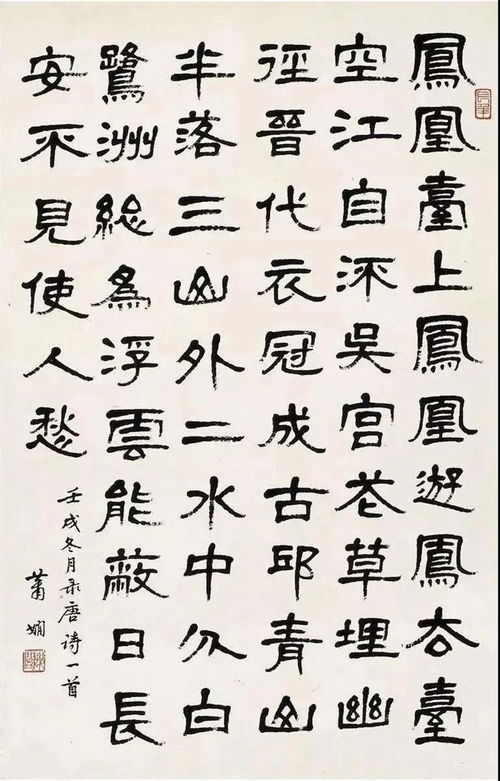 鳳凰臺上鳳凰遊鳳去臺
空江自流吳宮花草埋幽
徑晉代衣冠成古邱青山
半落三山外二水中分白
鷺洲總爲浮雲能蔽日長
安不見使人愁
壬戌冬月录唐诗一首
蕭嫻